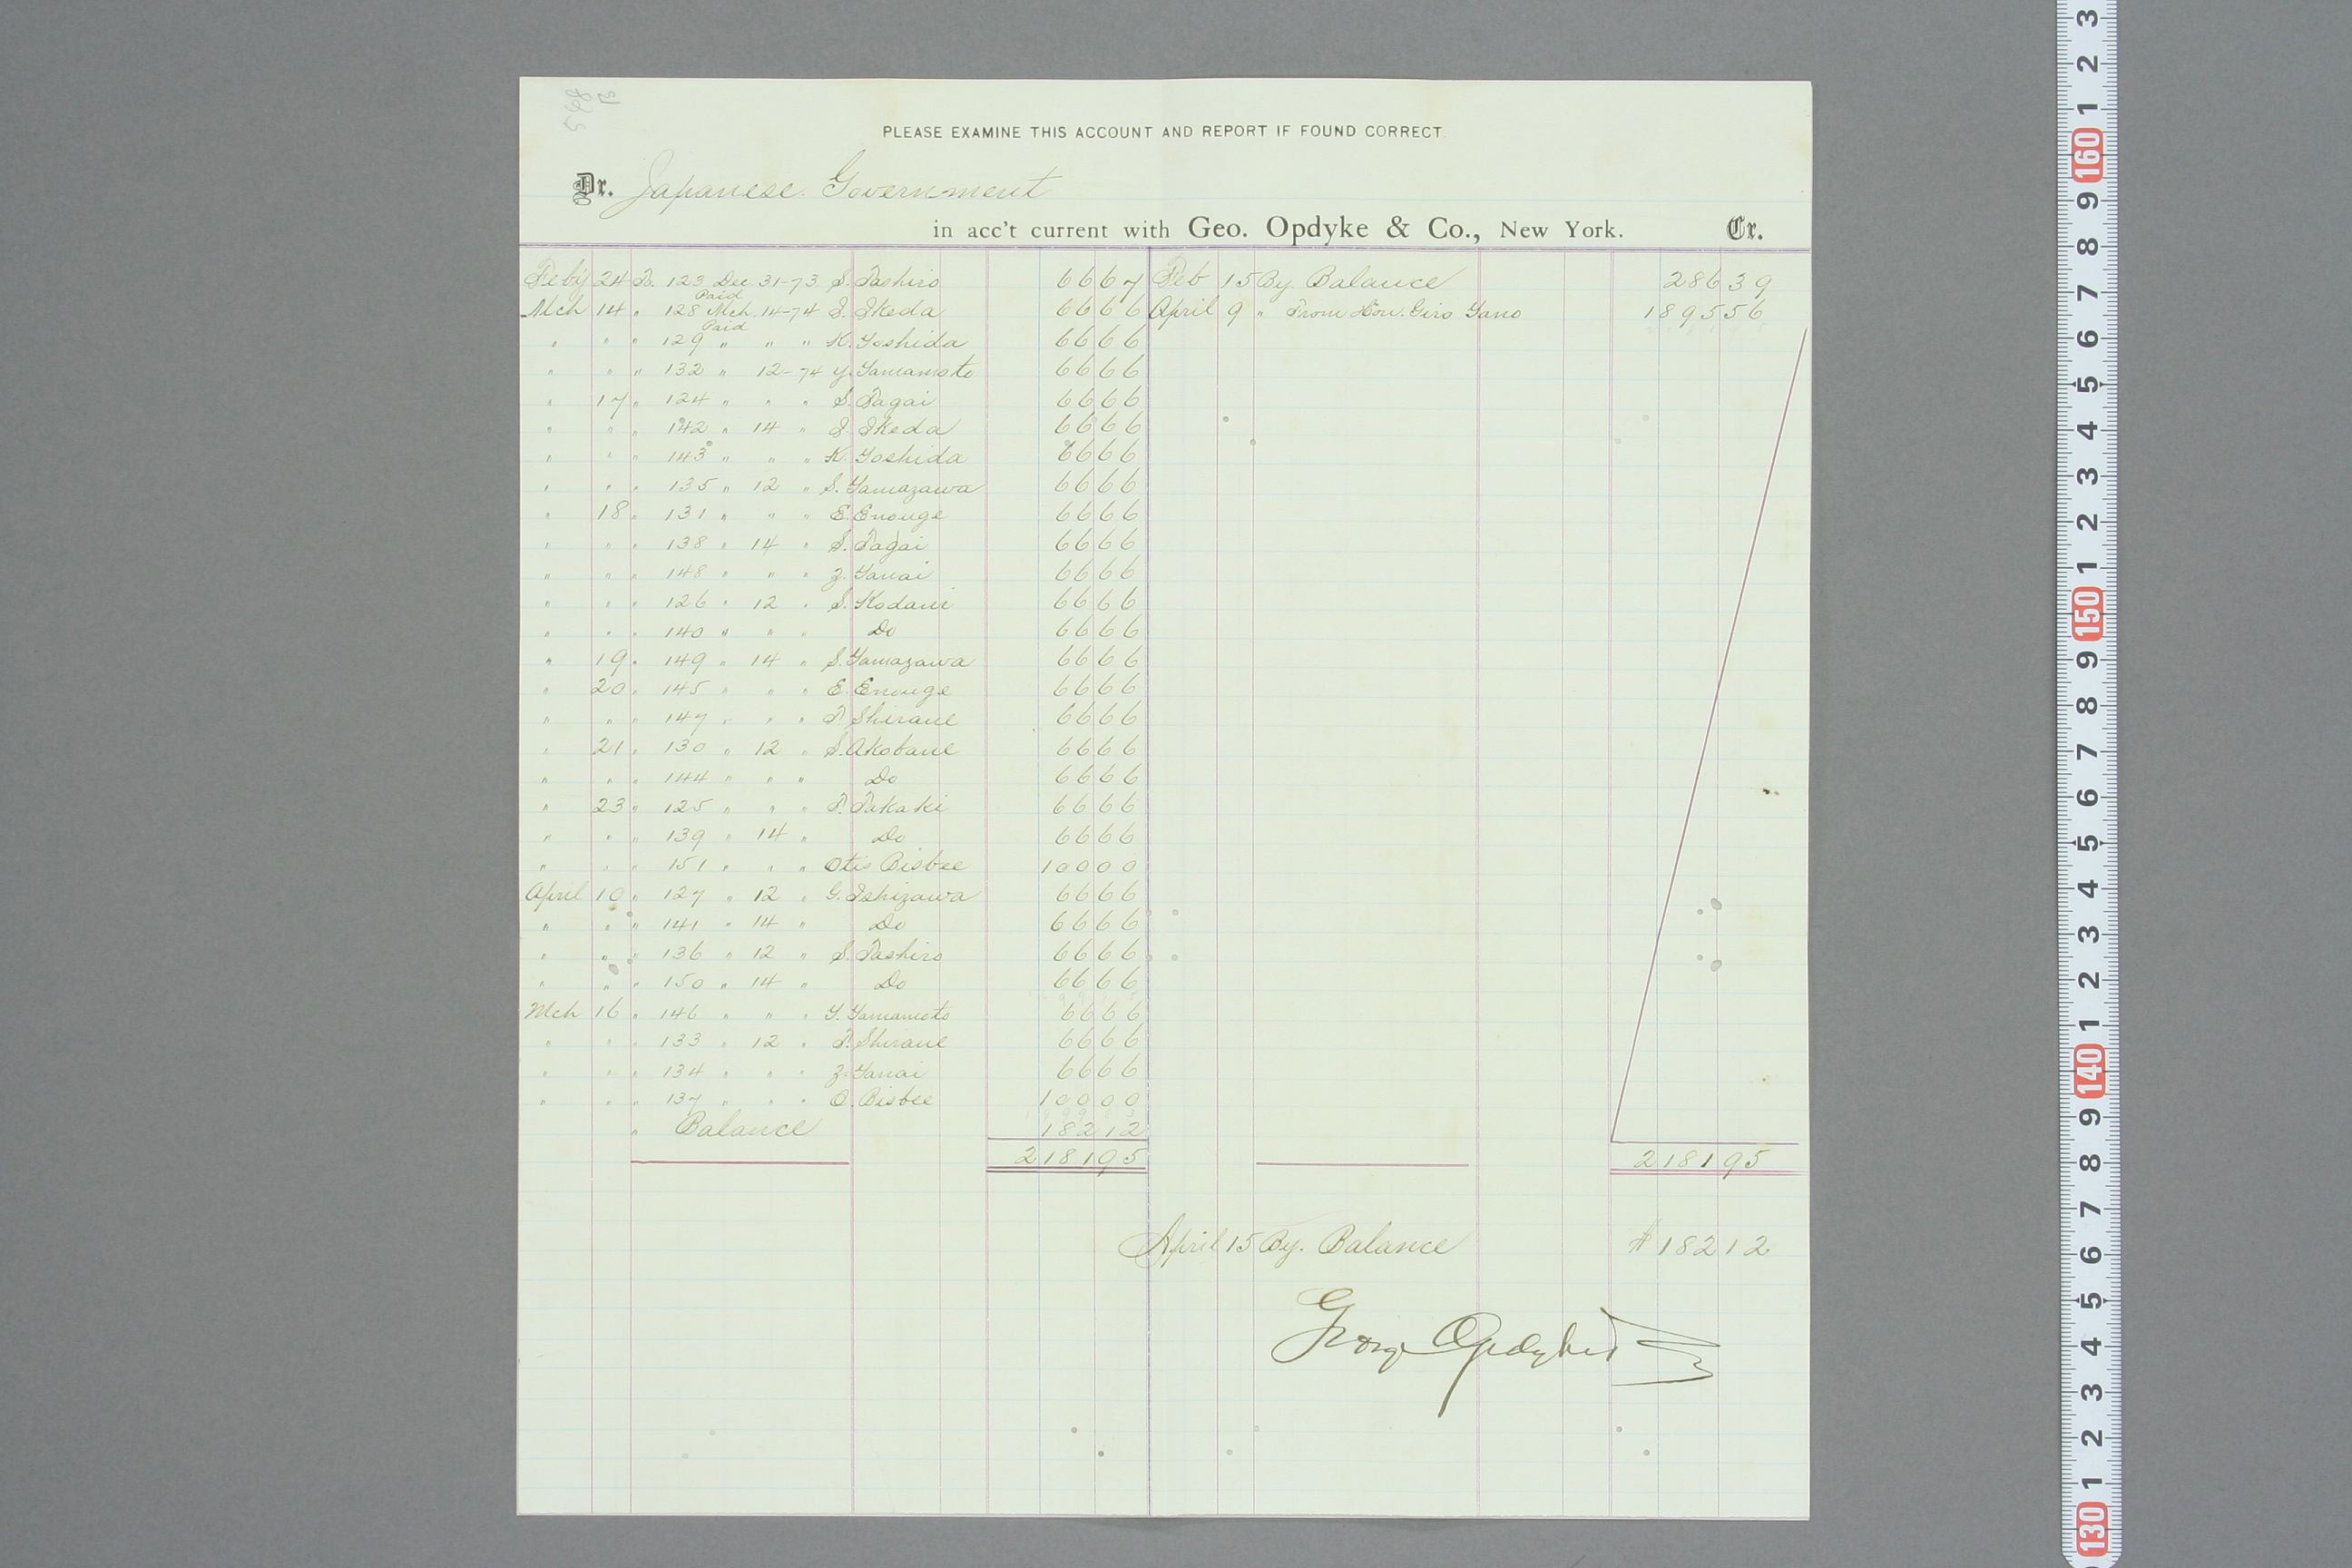 PLEASE EXAMINE THIS ACCOUNT AND REPORT IF FOUND CORRECT.
Dr. Japanese Government
in acc't current with Geo. Opdyke & Co., New York. Cr.
Feby 24 To. 123 Dec 31-73 S. Tashiro 66 67 Feb 15 By Balance 286 39
Paid
Mch 14 " 128 Mch 14-74 I. Ikeda 66 66 April 9 " From Hon. Giro Yano 1895 56
Paid
" " " 129 " " " K. Yoshida 66 66
" " " 132 " 12-74 Y. Yamamoto 66 66
" 17 " 124 " " " S. Tagai 66 66
" " " 142 " 14 " I. Ikeda 66 66
" " " 143 " " " K. Yoshida 66 66
" " " 135 " 12 " S. Yamazawa 66 66
" 18 " 131 " " " E. Enouge 66 66
" " " 138 " 14 " S. Tagai 66 66
" " " 148 " " " Z. Yanai 66 66
" " " 126 " 12 " S. Kodani 66 66
" " " 140 " " " Do 66 66
" 19 " 149 " 14 " S. Yamazawa 66 66
" 20 " 145 " " " E. Enouge 66 66
" " " 147 " " " T. Shirane 66 66
" 21 " 130 " 12 " S. Akobane 66 66
" " " 144 " " " Do 66 66
" 23 " 125 " " " T. Takaki 66 66
" " " 139 " 14 " Do 66 66
" " " 151 " " " Otis Bisbee 100 00
April 10 " 127 " 12 " G. Ishizawa 66 66
" " " 141 " 14 " Do 66 66
" " " 136 " 12 " S. Tashiro 66 66
" " " 150 " 14 " Do 66 66
Mch 16 " 146 " " " Y. Yamamoto 66 66
" " " 133 " 12 " T. Shirane 66 66
" " " 134 " " " Z. Yanai 66 66
" " " 137 " " " O. Bisbee 100 00
" Balance 182 12
2181 95 2181 95
April 15 By. Balance $182 12
George Opdyke
160
150
140
130